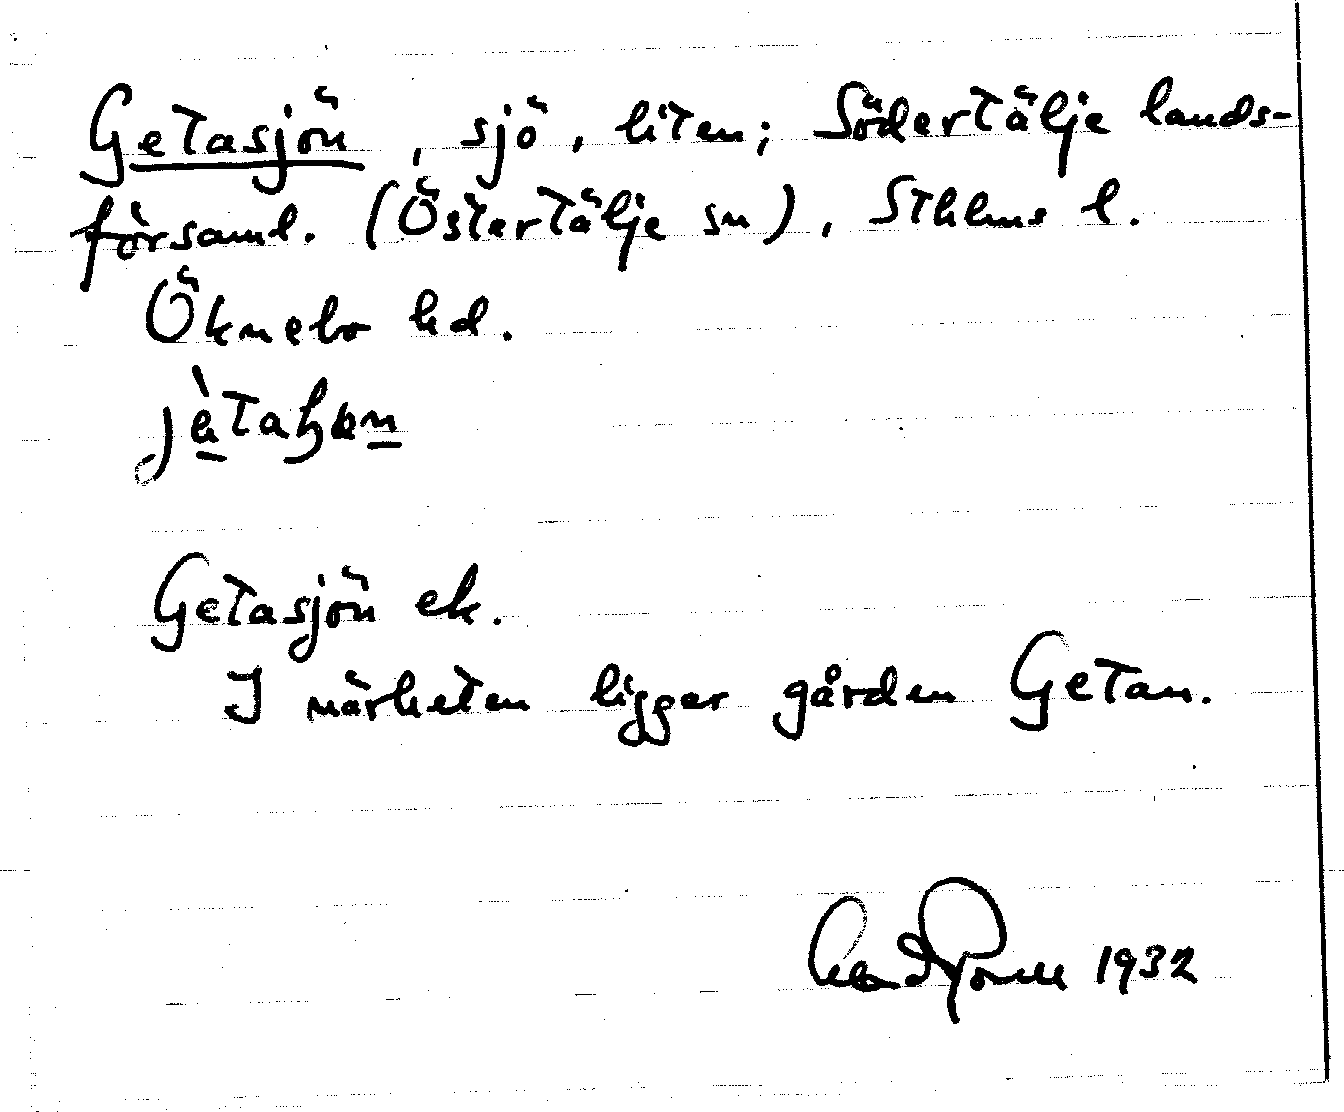 Getasjön, sjö, liten; Södertälje lands-
församl. (Östertälje sn), Sthlms l.
Öknebo hd.
Getasjön ek.
I närheten ligger gården Getan.
1932